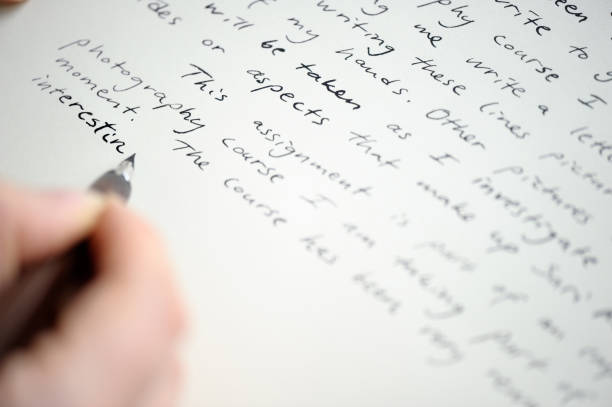 been
write to y
phy course I
ng me write a lette
writing these lines pictur
of my hands. Other pictures
will be taken as I investigate
des or aspects that make up Suri A
This assignment is part of an
photography course I am taking part of
moment. The course has been very
interestin